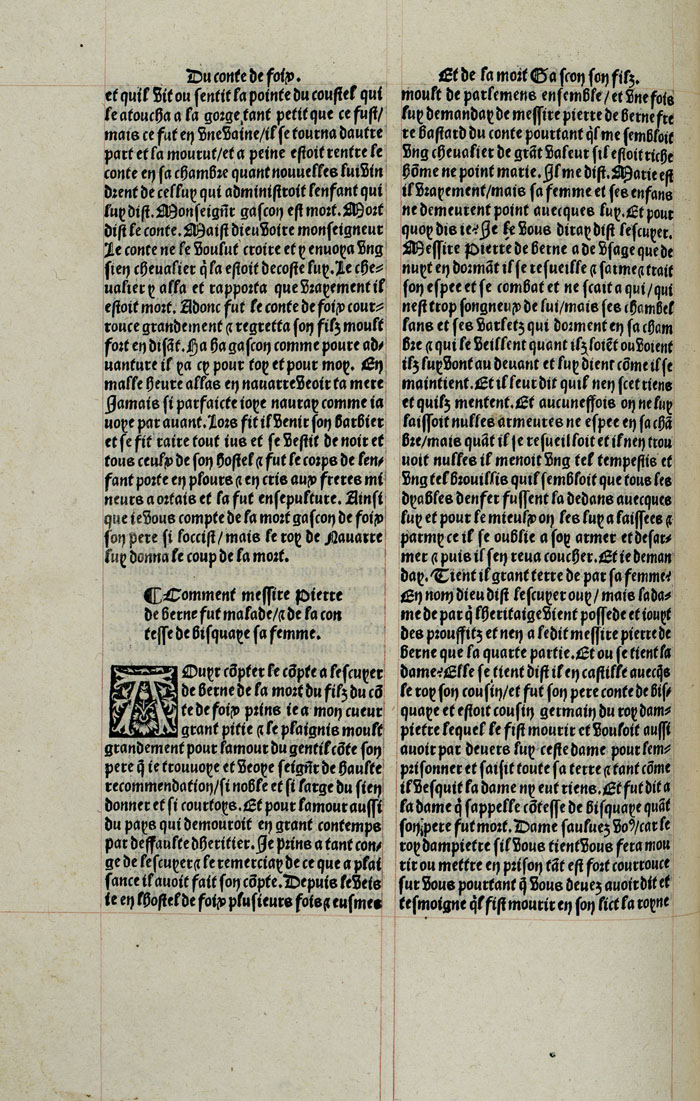 Du conte de foix.
et quil vit ou sentit la pointe du coustel qui
le atoucha a la gorge tant petit que ce fust/
mais ce fut en vne vaine/il se tourna dautre
part et la mourut/et a peine estoit rentre le
conte en sa chambre quant nouuelles lui vin
drent de celluy qui administroit lenfant qui
luy dist. Monseignr̃ gascon est mort. Mort
dist le conte. Maist dieu voire monseigneur
Le conte ne le voulut croire et y enuoya vng
sien chevalier q̃ la estoit decoste luy. Le che-
ualier y alla et rapporta que vrayement il
estoit mort. Adonc fut le conte de foix cour-
rouce grandement ⁊ regretta son filz moult
fort en disãt. Ha ha gascon comme poure ad-
uanture il ya cy pour toy et pour moy. En
malle heure allas en nauarre veoir ta mere
Jamais si parfaicte ioye nauray comme ia
uoye par auant. Lors fit il venir son barbier
et se fit raire tout ius et se vestit de noir et
tous ceulx de son hostel ⁊ fut le corps de len-
fant porte en plours ⁊ en cris aux freres mi
neurs a ortais et la fut ensepulture. Ainsi
que ie vous compte de la mort gascon de foix
son pere si loccist/mais le roy de Nauarre
luy donna le coup de la mort.
¶ Comment messire Pierre
de berne fut malade/⁊ de la con
tesse de bisquaye sa femme.
A Ouyr cõpter le cõpte a lescuyer
de berne de la mort du filz du cõ
te de foix prins ie a mon cueur
grant pitie ⁊ le plaignis moult
grandement pour lamour du gentil cõte son
pere q̃ ie trouuoye et veoye seignr̃ de haulte
recommendation/si noble et si large du sien
donner et si courtoys. Et pour lamour aussi
du pays qui demouroit en grant contemps
par deffaulte dheritier. Je prins a tant con-
ge de lescuyer ⁊ le remerciay de ce que a plai
sance il auoit fait son cõpte. Depuis le veis
ie en lhostel de foix plusieurs fois ⁊ eusmes
Et de la mort Gascon son filz.
moult de parlemens ensemble/et vne fois
luy demanday de messire pierre de berne fre
re bastard du conte pourtant q̃l me sembloit
vng chevalier de grãt valeur sil estoit riche
hõme ne point marie. Il me dist. Marie est
il vrayement/mais sa femme et ses enfans
ne demeurent point auecques luy. Et pour
quoy dis ie? Je le vous diray dist lescuyer.
Messire Pierre de berne a de vsage que de
nuyt en dormãt il se resueille ⁊ sarme ⁊ trait
son espee et se combat et ne scait a qui/qui
nest trop songneux de lui/mais ses chambel
lans et ses varletz qui dorment en sa cham
bre ⁊ qui le veillent quant ilz loiẽt ou voient
ilz luy vont au deuant et luy dient cõme il se
maintient. Et il leur dit quil nen scet riens
et quilz mentent. Et aucuneffois on ne luy
laissoit nulles armeures ne espee en sa chã
bre/mais quãt il je resueilloit et il nen trou
uoit nulles il menoit vng tel tempestis et
vng tel brouillis quil sembloit que tous les
dyables denfer fussent la dedans auecques
luy et pour le mieulx on les luy a laissees ⁊
parmy ce il se oublie a soy armer et desar-
mer ⁊ puis il sen reua coucher. Et ie deman
day. Tient il grant terre de par sa femme?
En nom dieu dist lescuyer ouy/mais la da-
me de par q̃ lheritaige vient possede et iouyt
des prouffitz et nen a ledit messire pierre de
berne que la quarte partie. Et ou se tient la
dame? Elle se tient dist il en castille auecq̃s
le roy son cousin/et fut son pere conte de bis-
quaye et estoit cousin germain du roy dam-
pietre lequel le fist mourir et vouloit aussi
auoir par deuers luy ceste dame pour lem-
prisonner et saisit toute sa terre ⁊ tant cõme
il vesquit la dame ny eut riens. Et fut dit a
la dame q̃ sappelle cõtesse de bisquaye quãt
son pere fut mort. Dame sauluez voꝰ/car le
roy dampietre sil vous tient vous fera mou
rir ou mettre en prison tãt est fort courrouce
sur vous pourtant q̃ vous deuez auoir dit et
tesmoigne q̃l fist mourir en son lict la royne